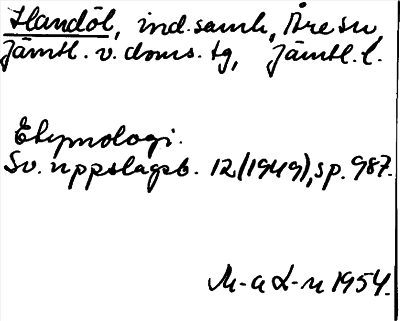 Handöl, ind.samh., Åre sn,
Jämtl. v. doms. tg, Jämtl. l.
Etymologi.
Sv. uppslagsb. 12 (1949), sp. 987.
M-a L-n 1954.